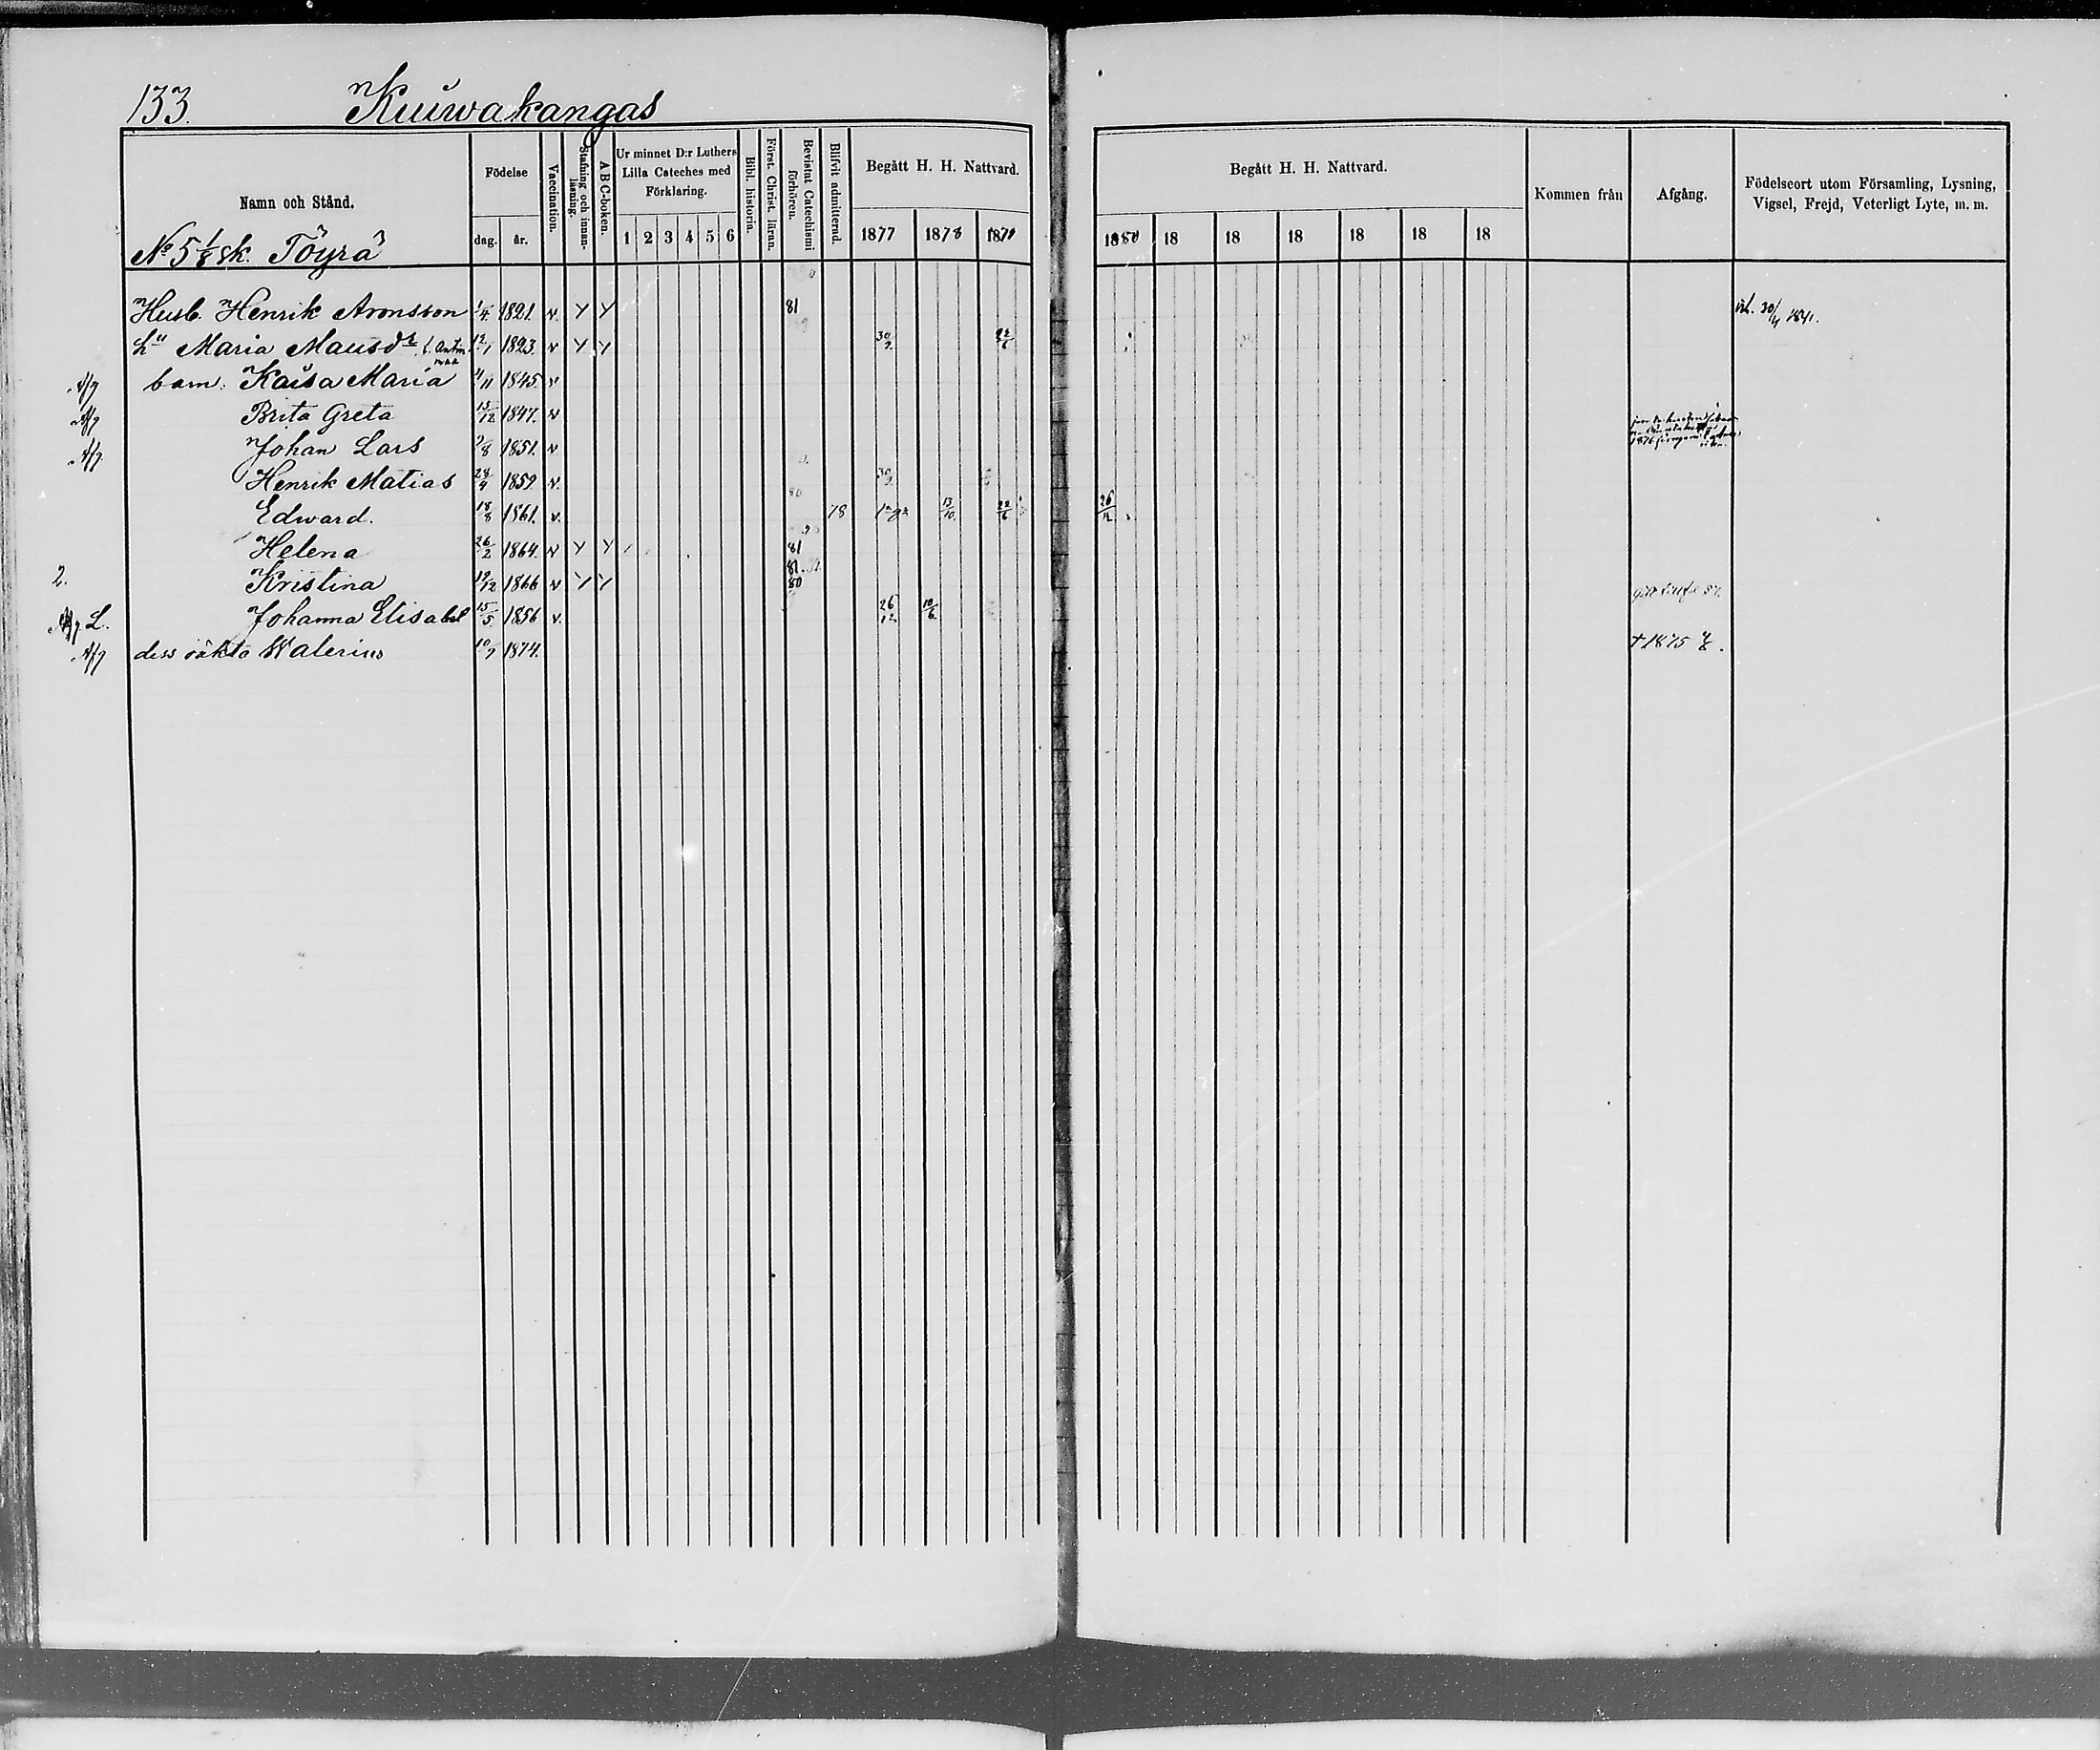 133. Kuiwakangas
Namn och Stånd. Födelse Vaccination. Stafning och innan-läsning. A B C-boken. Ur minnet D:r Luthers Lilla Cateches med Förklaring. Bibl. historia. Först. Christ. läran. Bevistat Catechismi förhören. Blifvit admitterad. Begått H. H. Nattvard.
dag. år. 1 2 3 4 5 6 1877 1878 1879
No 5 1/8 sk. Töyrä
Husb. Henrik Aronsson 1/4 1821. v. Y Y 81
Hu Maria Mausdr 12/1 1823. v Y Y 30/9 22/6
Afg barn. Kaisa Maria 1845. v
Afg Brita Greta 15/12 1847. v
Afg Johan Lars 9/8 1851. v
Henrik Matias 28/4 1859. v. 30/9
Edward. 18/8 1861. v. 78 13/10 22/6
Helena 26/2 1864. v Y Y 81
2. Kristina 19/12 1866 v Y Y 81. 80
Afg L. Johanna Elisabet 15/5 1856 v. 26/12 10/6
Afg dess oäkta Walerius 10/9 1874.
Begått H. H. Nattvard. Kommen från Afgång. Födelseort utom Församling, Lysning, Vigsel, Frejd, Veterligt Lyte, m. m.
1880 18 18 18 18 18 18
30/4 1841.
26/12
† 1875